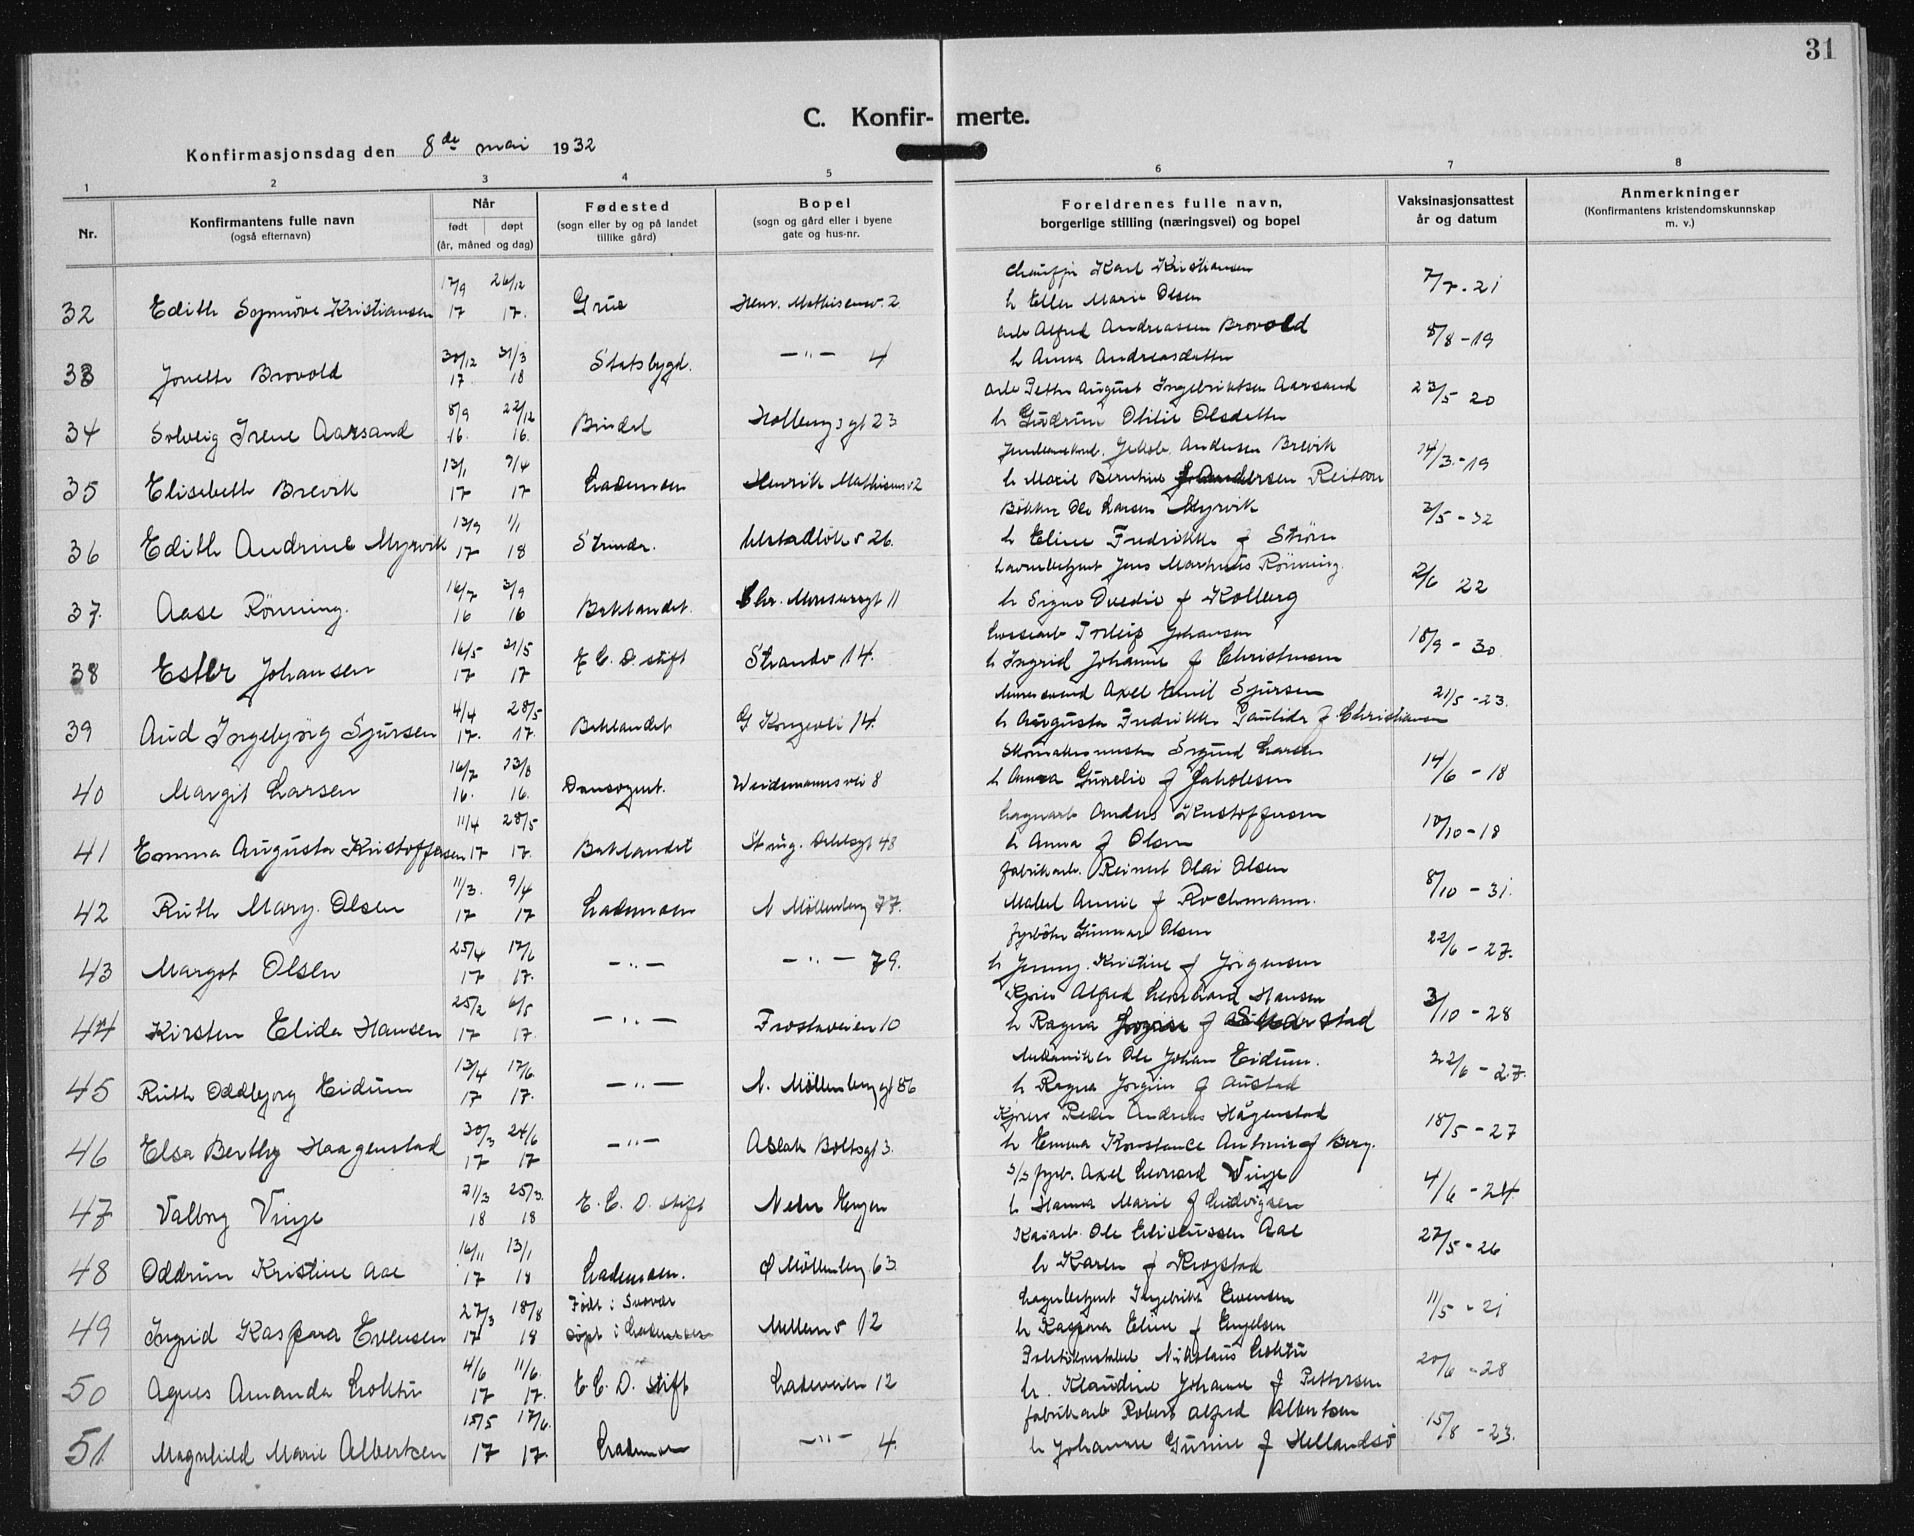 31
C. Konfirmerte.
Konfirmasjonsdag den 8de mai 1932
1 2 3 4 5 6 7 8
Nr.
Konfirmantens fulle navn
(også efternavn)
Når
født døpt
(år, måned og dag)
Fødested
(sogn eller by og på landet
tillike gård)
Bopel
(sogn og gård eller i byene
gate og hus-nr.
Foreldrenes fulle navn,
borgerlige stilling (næringsvei) og bopel
Vaksinasjonsattest
år og datum
Anmerkninger
(Konfirmantens kristendomskunnskap
m. v.)
17/9 26/12 Karl Kristiansen
32 Edith Synnøve Kristiansen 17 17. Grue Henr. Mathisensv. 2 h Ellen Marie Olsen 7/7 . 21
30/12 31/3 arb Alfred Andreassen Brovold
33 Jonette Brovold 17. 18 Statsbygd. —"— 4 h Anna Andreasdatter 8/8 - 19
8/9 22/12 arb Petter August Ingebriktsen Aarsand
34 Solveig Irene Aarsand 16. 16. Bindal Holbergsgt 23 h Gudrun Otilie Olsdatter 23/5 20
13/1 9/4 Jakob Andersen Brevik
35 Elisabeth Brevik 17 17 Lademoen Henrik Mathisensv 2 h Marie Berntine Reitan 14/3 - 19
13/9 1/1 Bøkker Ole Larsen Myrvik
36 Edith Andrine Myrvik 17 18 Strinda. 26. h Eline Fredrikke f Strøm 2/5 - 32
16/7 3/9 Jens Martinus Rönning.
37. Aase Rønning. 16 16 Baklandet. Chr. Monsensgt 11 h Signe f Kolberg 2/6 22
16/5 21/5 Lossearb Johansen
38 Ester Johansen 17 17 E. C. D. stift Strandv 14. h Ingrid Johanne f Christensen 18/9 - 30
4/4 28/5 Murersvend Axel Emil Sjursen
39 Aud Ingebjørg Sjursen 17. 17. Baklandet G Kongevei 14. h Augusta Fredrikke Paulida f Christiansen 21/5 - 23.
16/7 23/8 Skomakermester Sigurd Larsen
40 Margit Larsen 16. 16. Weidemannsvei 8 h Anna Gurelie f Jakobsen 14/6 - 18
11/4 28/5 Lagerarb Anders Kristoffersen
41 Emma Augusta Kristoffersen 17 17. Baklandet 48 h Anna f Olsen 10/10 - 18
11/3. 9/4 fabrikarb. Reinert Olai Olsen
42 Ruth Mary Olsen 17 17 Lademoen N Möllenberg 77. Mabel Annie f Rochmann. 8/10 - 31.
25/4 17/6 fyrbøter Gunnar Olsen
43 Margot Olsen 17 17. —"— —"— 79. h Jenny Kristine f Jörgensen 22/6 - 27.
25/2 6/5 Alfred Leonhard Hansen
44 Kirsten Elida Hansen 17 17. —"— Frostaveien 10 h Ragna 3/10 - 28
13/4 17/6. Mekaniker Ole Johan Eidum.
45 Ruth Oddbjorg Eidum 17 17. —"— N. Möllenberggt 86 h Ragna Jorgine f Austad 22/6 - 27.
30/3 24/6 Peder Andreas Hågenstad
46 Elsa Berthy Haagenstad 17 17 —"— Aslak Boltsgt 3. h Emma Konstance Antonie f Berg. 18/5 - 27
21/3 25/3. s/s fyrb. Axel Leonard Vinje
47 Valborg Vinje 18 18 E. C. D. stift Nedre Engen h Hanna Marie f Ludvigsen 4/6 - 24
16/11 13/1 Kaiarb. Ole Aae
48 Oddrun Kristine Aae 17 18 Lademoen. Ø Möllenberg 63 h Karen f Krogstad 27/5 - 26
27/3 18/8 Født i Svolvær Lagerbetjent Ingebrikt Evensen
49 Ingrid Kaspara Evensen 17 18 döpt i Lademoen Mellemv 12 h Kaspara Eline f Engelsen 11/5 - 21
4/6 11/6. Nikolaus Loktu
50 Agnes Amanda Loktu 17 17. E. C. D. stift Ladeveien 12 h. Klaudine Johanne f Pettersen 20/6 - 28
15/5 17/6. fabrikarb Robert Alfred Albertsen
51. Magnhild Marie Albertsen 17 17. Lademoen —"— 4. h Johanne Gurine f Hellandsø 15/8 - 23.